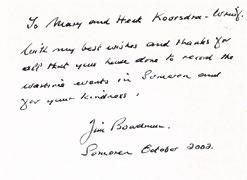 To Mary and Henk Koorstra-
With my best wishes and thanks for
all that you have done to record the
wartime events in Someren and
for your kindness,
Jim Boadman.
Someren October 2002.